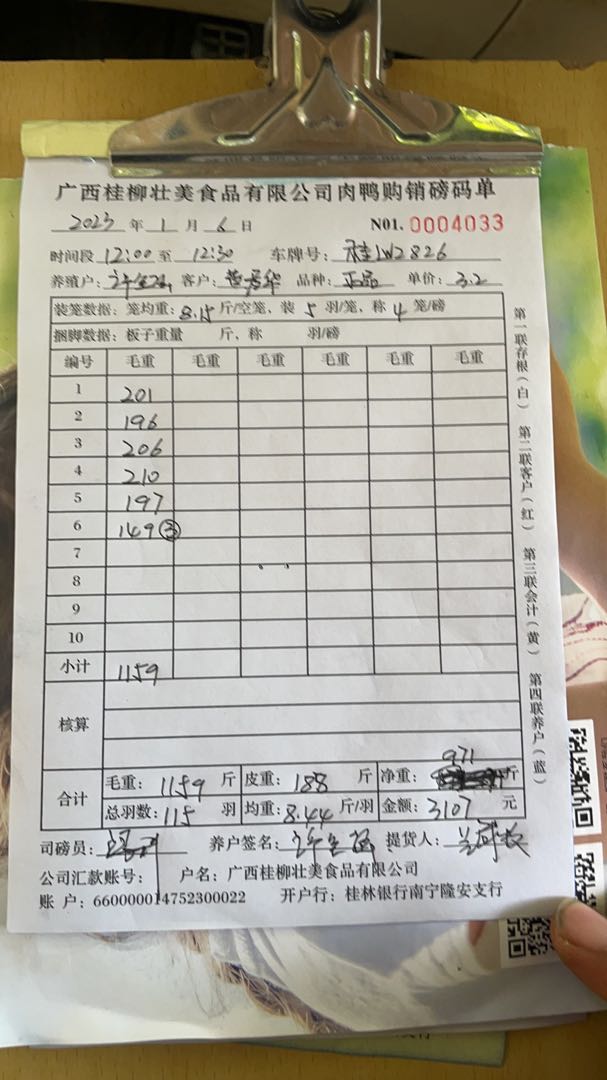 广西桂柳壮美食品有限公司肉鸭购销磅码单
2023 年 1 月 6 日 NO1. 0004033
时间段 12:00 至 12:30 车牌号: 桂1W2826
养殖户: 客户: 黄秀华 品种: 正品 单价: 3.2
装笼数据: 笼均重: 8.15 斤/空笼、装 5 羽/笼、称 4 笼/磅
捆脚数据: 板子重量 斤、称 羽/磅
编号 毛重 毛重 毛重 毛重 毛重 毛重
1 201
2 196
3 206
4 210
5 197
6 149③
7
8
9
10
小计 1159
核算
合计
毛重: 1159 斤 皮重: 188 斤 净重: 971 斤
总羽数: 115 羽 均重: 8.44 斤/羽 金额: 3107 元
司磅员: 养户签名: 提货人:
公司汇款账号: 户名: 广西桂柳壮美食品有限公司
账 户: 660000014752300022 开户行: 桂林银行南宁隆安支行
第一联存根(白)
第二联客户(红)
第三联会计(黄)
第四联养户(蓝)